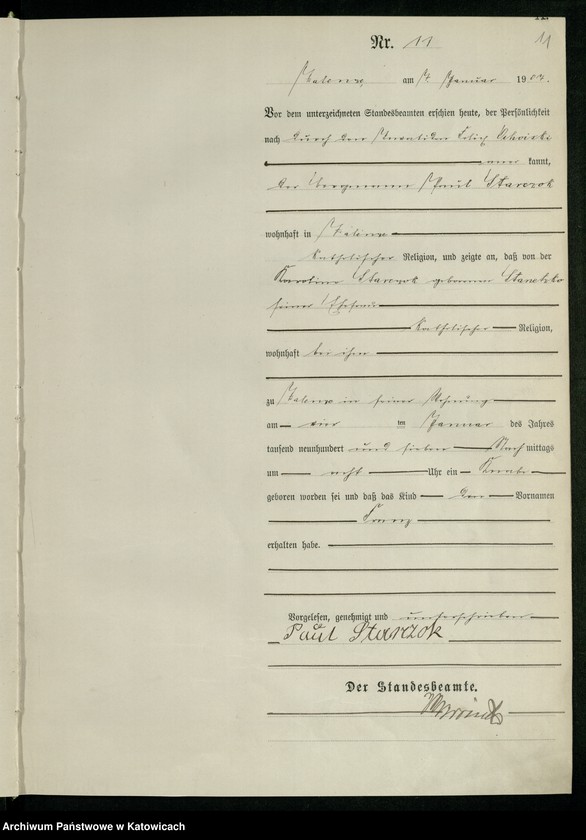 11
Nr. 11
Zalenze am 7. Januar 1907.
Vor dem unterzeichneten Standesbeamten erschien heute, der Persönlichkeit
nach durch den Invaliden Felix
aner kannt,
der Bergmann Paul Starczok
wohnhaft in Zalenze
katholischer Religion, und zeigte an, daß von der
Karoline Starczok geborenen Stanetzko
seiner Ehefrau
katholischer Religion,
wohnhaft bei ihm
zu Zalenze in seiner Wohnung
am vier ten Januar des Jahres
tausend neunhundert und sieben Nach mittags
um acht Uhr ein Knabe
geboren worden sei und daß das Kind den Vornamen
Franz
erhalten habe.
Vorgelesen, genehmigt und unterschrieben
Paul Starczok
Der Standesbeamte.
Archiwum Państwowe w Katowicach